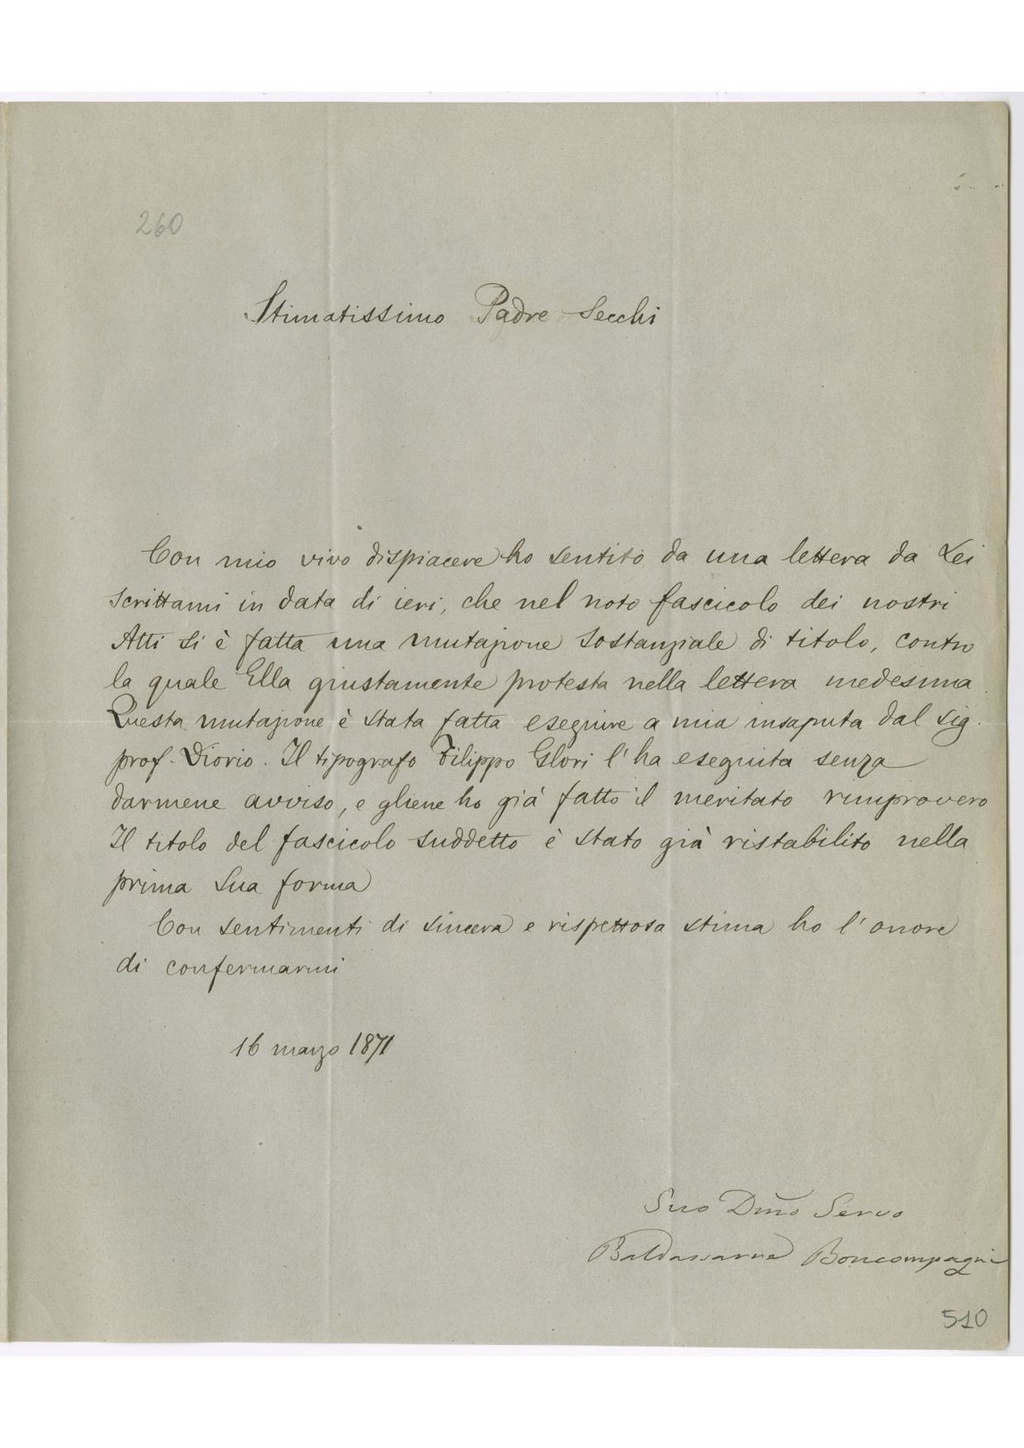 260
Stimatissimo Padre Secchi
Con mio vivo dispiacere ho sentito da una lettera da Lei
scrittami in data di ieri, che nel noto fascicolo dei nostri
Atti si è fatta una mutazione sostanziale di titolo, contro
la quale Ella giustamente protesta nella lettera medesima
Questa mutazione è stata fatta eseguire a mia insaputa dal sig.
prof. Diorio. Il tipografo Filippo Glori l'ha eseguita senza
darmene avviso, e gliene ho già fatto il meritato rimprovero
Il titolo del fascicolo suddetto è stato già ristabilito nella
prima sua forma
Con sentimenti di sincera e rispettosa stima ho l'onore
di confermarmi
16 marzo 1871
Suo Dmo Servo
Baldassarre Boncompagni
510